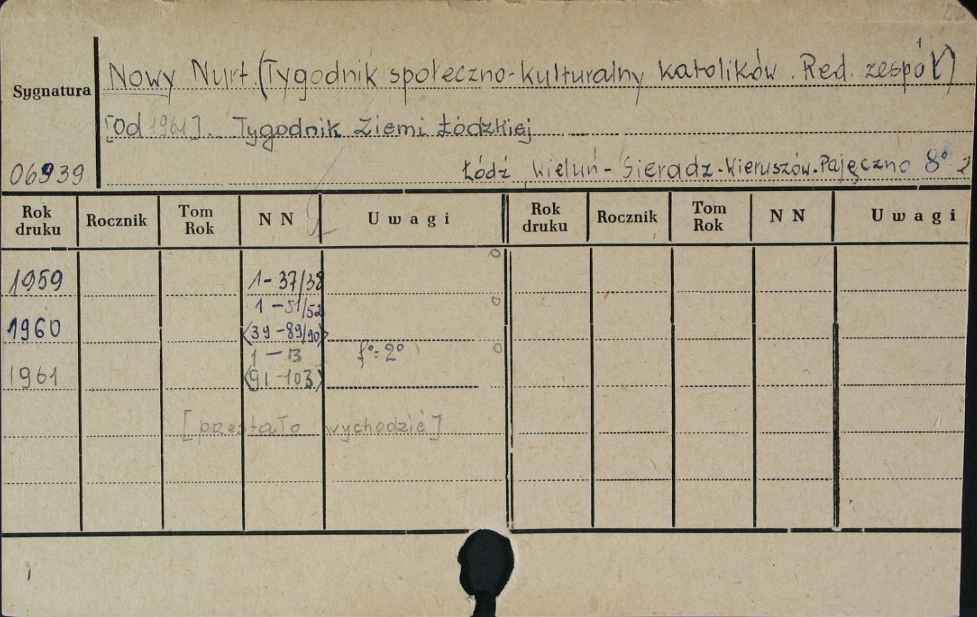 Nowy Nurt. (Tygodnik społeczno-kulturalny katolików. Red. zespół)
Sygnatura
[Od 1961]. Tygodnik Ziemi Łódzkiej
06939
Łódź, Wieluń - Sieradz - Wieruszów. Pajęczno 8° 2
Rok druku Rocznik Tom Rok NN Uwagi Rok druku Rocznik Tom Rok NN Uwagi
1959 1-37/38
1-51/52
1960 <39-89/90>
1-13 f°: 2°
1961 <91-103>
[przestało wychodzić]